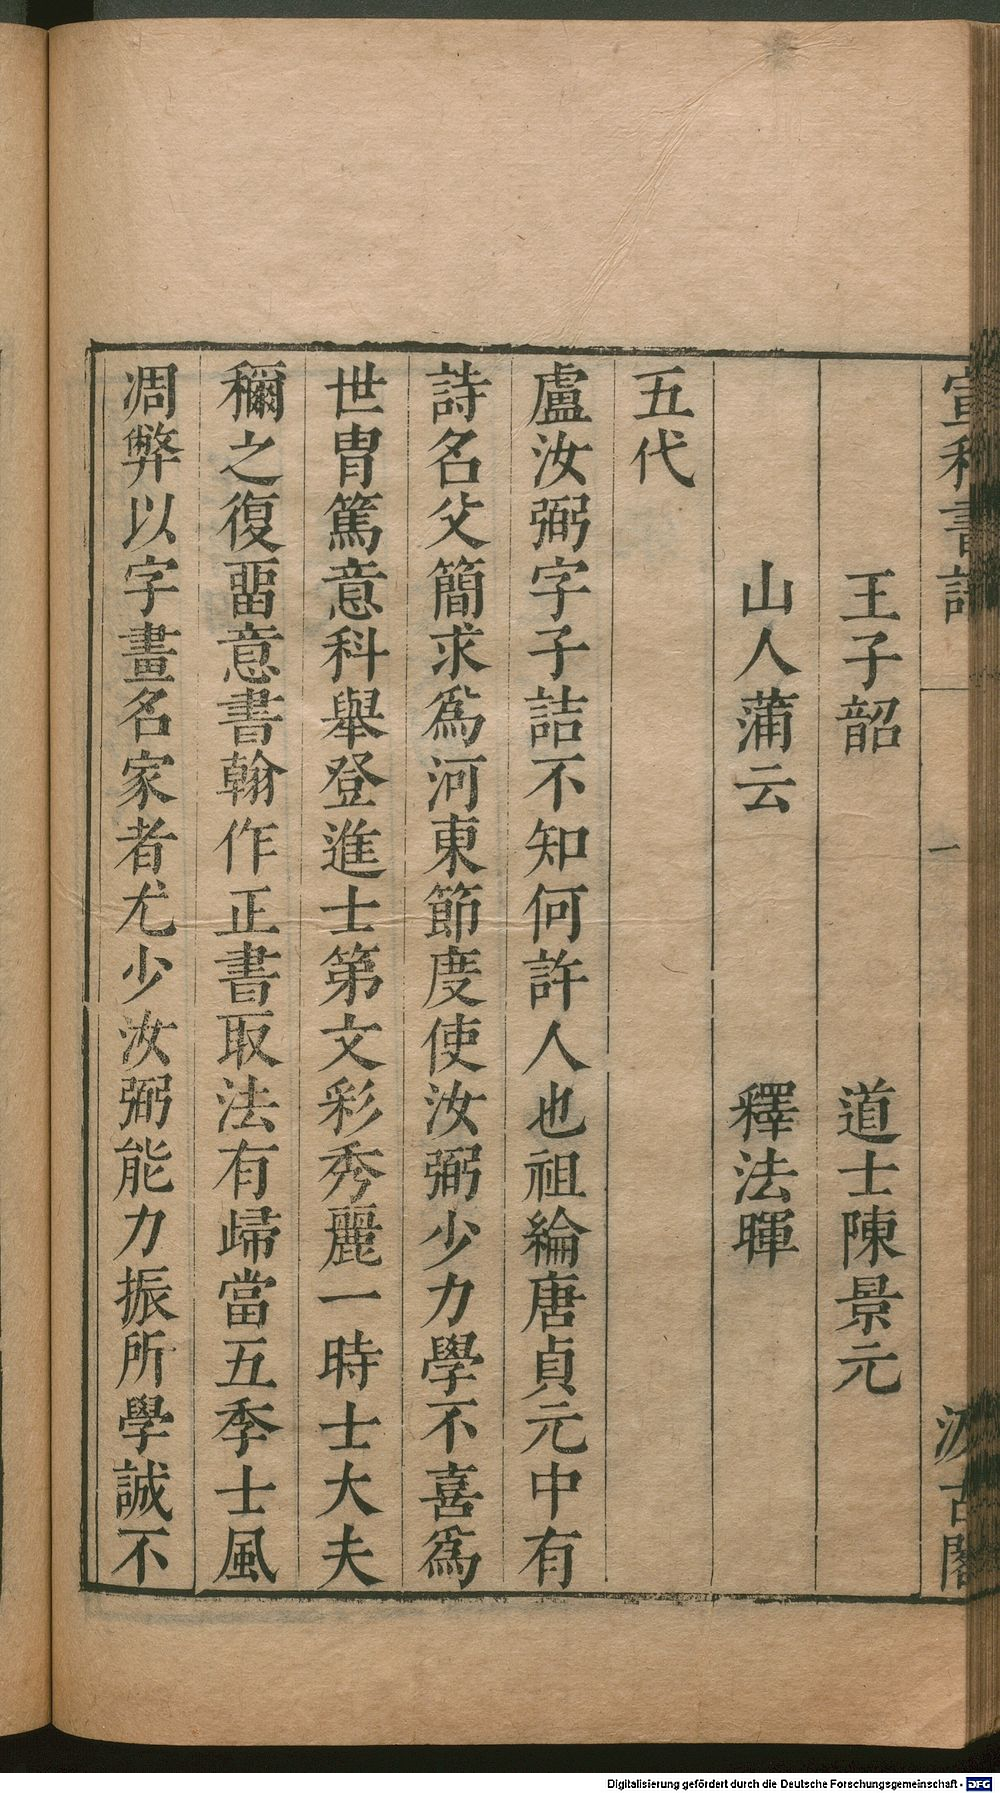 宣和書譜 一 汲古閣
王子韶 道士陳景元
山人蒲云 釋法暉
五代
盧汝弼字子詰不知何許人也祖綸唐貞元中有
詩名父簡求爲河東節度使汝弼少力學不喜爲
世冑篤意科舉登進士第文彩秀麗一時士大夫
稱之復畱意書翰作正書取法有歸當五季士風
凋弊以字畫名家者尤少汝弼能力振所學誠不
Digitalisierung gefördert durch die Deutsche Forschungsgemeinschaft - DFG